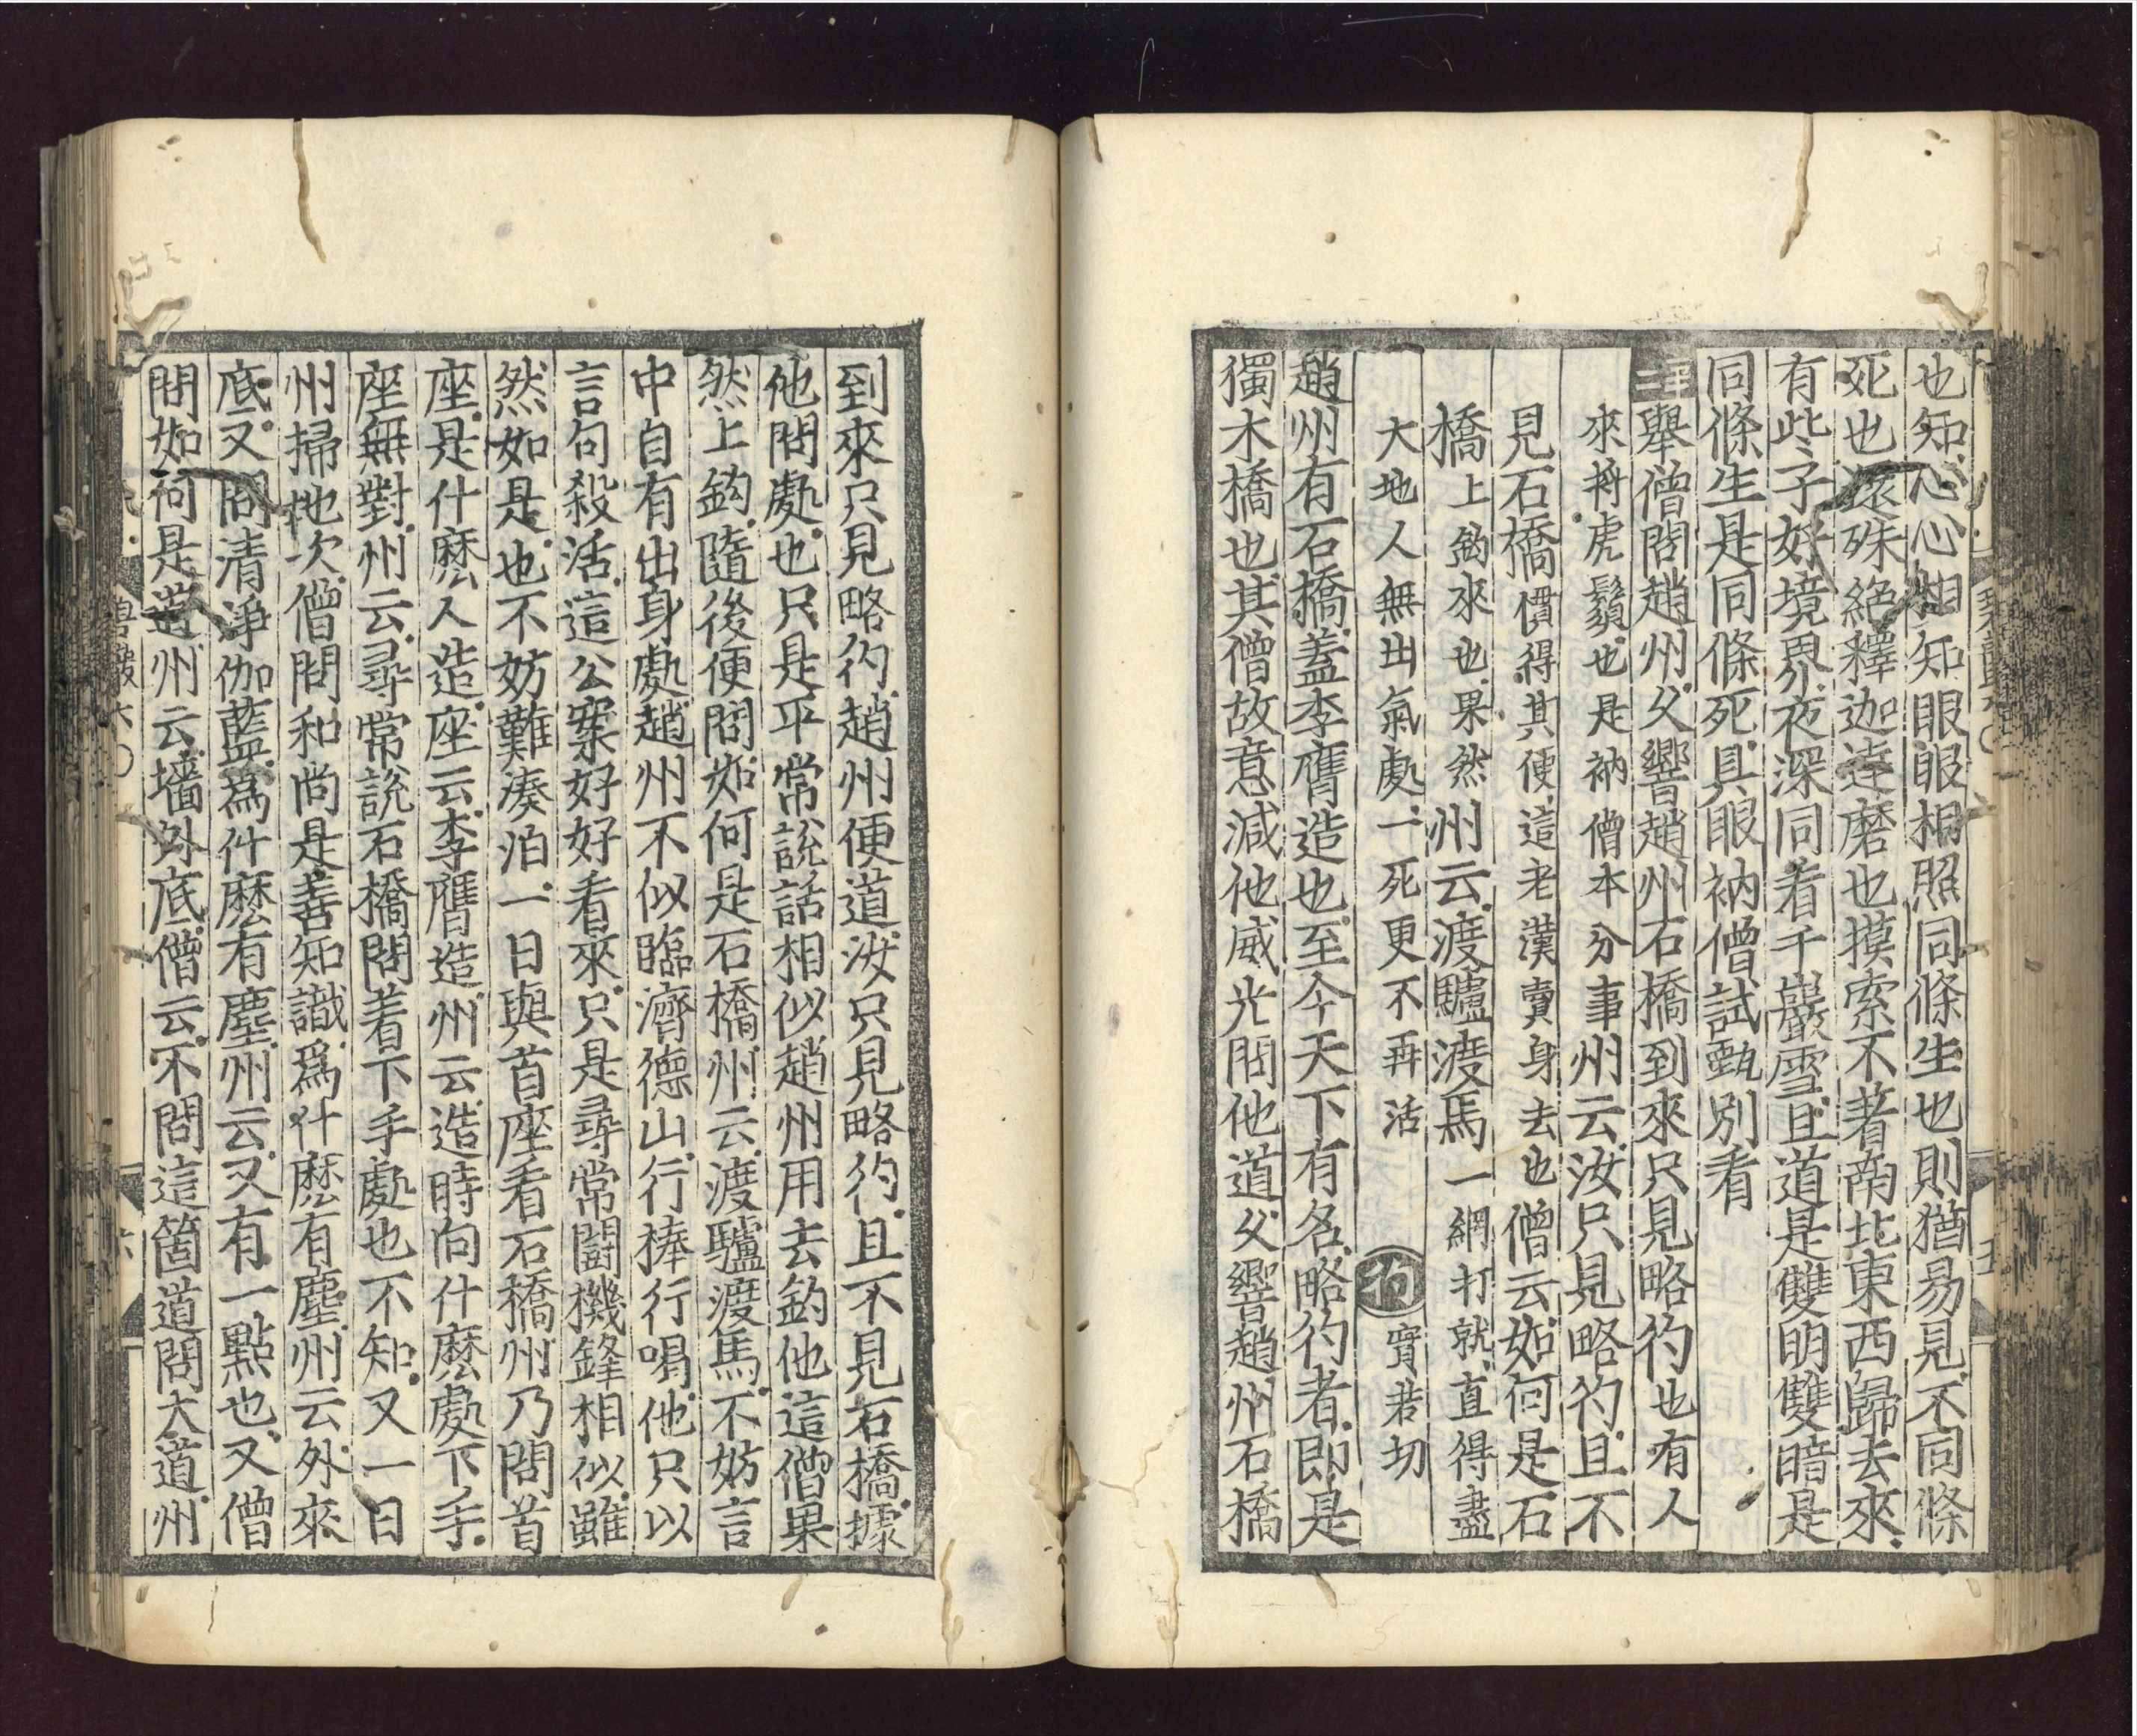 也知心心相知眼眼相照同條生也則猶易見不同條
死也還殊絶釋迦達磨也摸索不著南北東西歸去來
有些子好境界夜深同看千巖雪且道是雙明雙暗是
同條生是同條死具眼衲僧試甄別看
舉僧問趙州久響趙州石橋到來只見略彴也有人
來捋虎鬚也是衲僧本分事州云汝只見略彴且不
見石橋慣得其便這老漢賣身去也僧云如何是石
橋上鈎來也果然州云渡驢渡馬一網打就直得盡
大地人無出氣處一死更不再活彴實若切
趙州有石橋蓋李膺造也至今天下有名略彴者即是
獨木橋也其僧故意減他威光問他道久響趙州石橋
到來只見略彴趙州便道汝只見略彴且不見石橋據
他問處也只是平常說話相似趙州用去釣他這僧果
然上鈎隨後便問如何是石橋州云渡驢渡馬不妨言
中自有出身處趙州不似臨濟德山行棒行喝他只以
言句殺活這公案好好看來只是尋常鬪機鋒相似雖
然如是也不妨難湊泊一日與首座看石橋州乃問首
座是什麽人造座云李膺造州云造時向什麽處下手
座無對州云尋常說石橋問着下手處也不知又一日
州掃地次僧問和尚是善知識爲什麽有塵州云外來
底又問清淨伽藍爲什麽有塵州云又有一點也又僧
問如何是道州云墻外底僧云不問這箇道問大道州